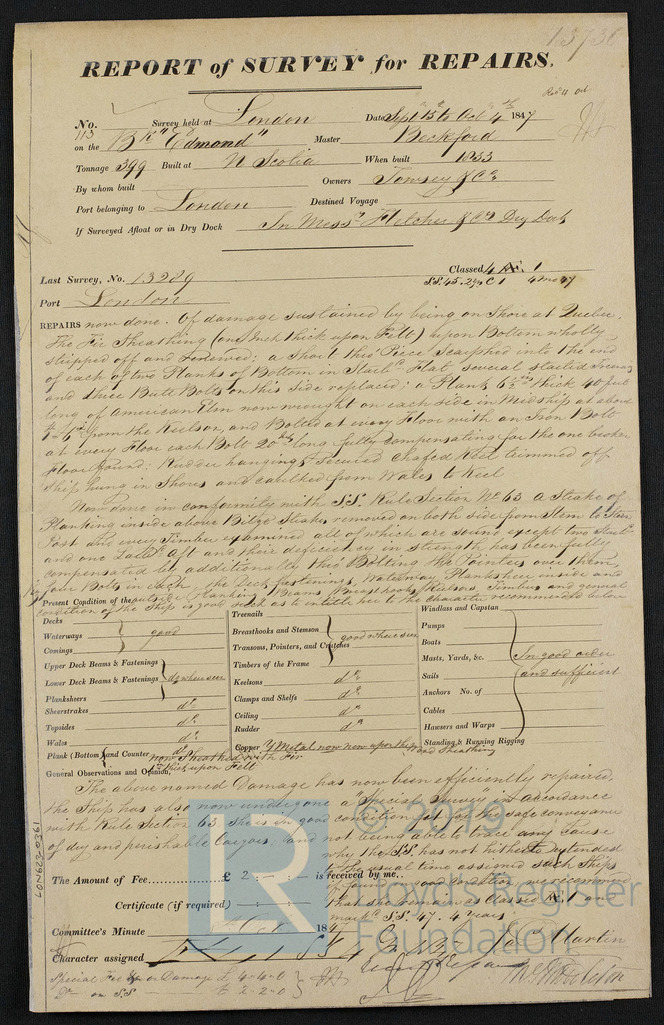 13736
REPORT of SURVEY for REPAIRS.
No. 113 Survey held at London Date Sept 15th to Oct 4th 1847
on the Bk "Edmond" Master Beckford
Tonnage 399 Built at N Scotia When built 1833
By whom built Owners Towsey & Co
Port belonging to London Destined Voyage
If Surveyed Afloat or in Dry Dock In Messrs Fletcher & Co Dry Dock
Last Survey, No. 13289 Classed 4 Æ 1
Port London
REPAIRS now done. Of damage sustained by being on Shore at Quebec.
The Fir Sheathing (one Inch thick upon Felt) upon Bottom wholly
stripped off and renewed; a short thin Piece Scarphed into the end
of each of two Planks of Bottom in Starbd Flat, several started
and three Butt Bolts on this side replaced; a Plank thick 40 feet
long of American Elm now wrought on each side in Midship at about
from the Keelson, and Bolted at every Floor with an Iron Bolt
at every Floor each Bolt 20 Ins long fully compensating for the one broken
Floor found; Rudder hangings secured Chafed Keel trimmed off
Ship hung in Shores and caulked from Wales to Keel
Now done in conformity with SS. Rule Section No 63 a Strake of
Planking inside above Bilge Strakes removed on both side from Stem to Stern
Post and every Timber examined all of which are sound except two Starbd
and one Larbd Aft and their deficiency in strength has been fully
compensated by additionally thro' Bolting the Pointers over them
four Bolts in each, the Deck fastenings, Waterway, Planksheer inside and
Present Condition of the outside Planking Beams Breasthooks Keelsons Timbers and general
condition of the Ship is good such as to entitle her to the character recommended below
Decks
Waterways good
Comings
Upper Deck Beams & Fastenings
Lower Deck Beams & Fastenings do where seen
Planksheers
Sheerstrakes do
Topsides do
Wales do
Plank (Bottom) and Counter do now Sheathed with Fir
1 In thick upon Felt
Treenails
Breasthooks and Stemson good where seen
Transoms, Pointers, and Crutches
Timbers of the Frame
Keelsons do
Clamps and Shelfs do
Ceiling do
Rudder do
Copper Y Metal now new upon the Wood Sheathing
Windlass and Capstan
Pumps
Boats
Masts, Yards, &c. In good order
Sails and sufficient
Anchors No. of
Cables
Hawsers and Warps
Standing & Running Rigging
General Observations and Opinion,
The above named Damage has now been efficiently repaired,
the Ship has also now undergone a "Special Survey" in accordance
with Rule Section 63, She is in good condition fit for the safe conveyance
of dry and perishable Cargoes, and not being able to trace any cause
why the SS. has not hitherto extended
to the usual time assigned such Ships
if found in good condition we recommend
that she remain as Classed Æ 1 and
marked SS. 47. 4 years
The Amount of Fee £ 2 : - : - is received by me.
Certificate (if required) - : - : -
Committee's Minute Oct 1847
Character assigned
Martin
Special Fee for Damage £ 4-4-0
Do on SS £ 2-2-0
LON623-0361
© 2019
LR
Lloyd's Register
Foundation